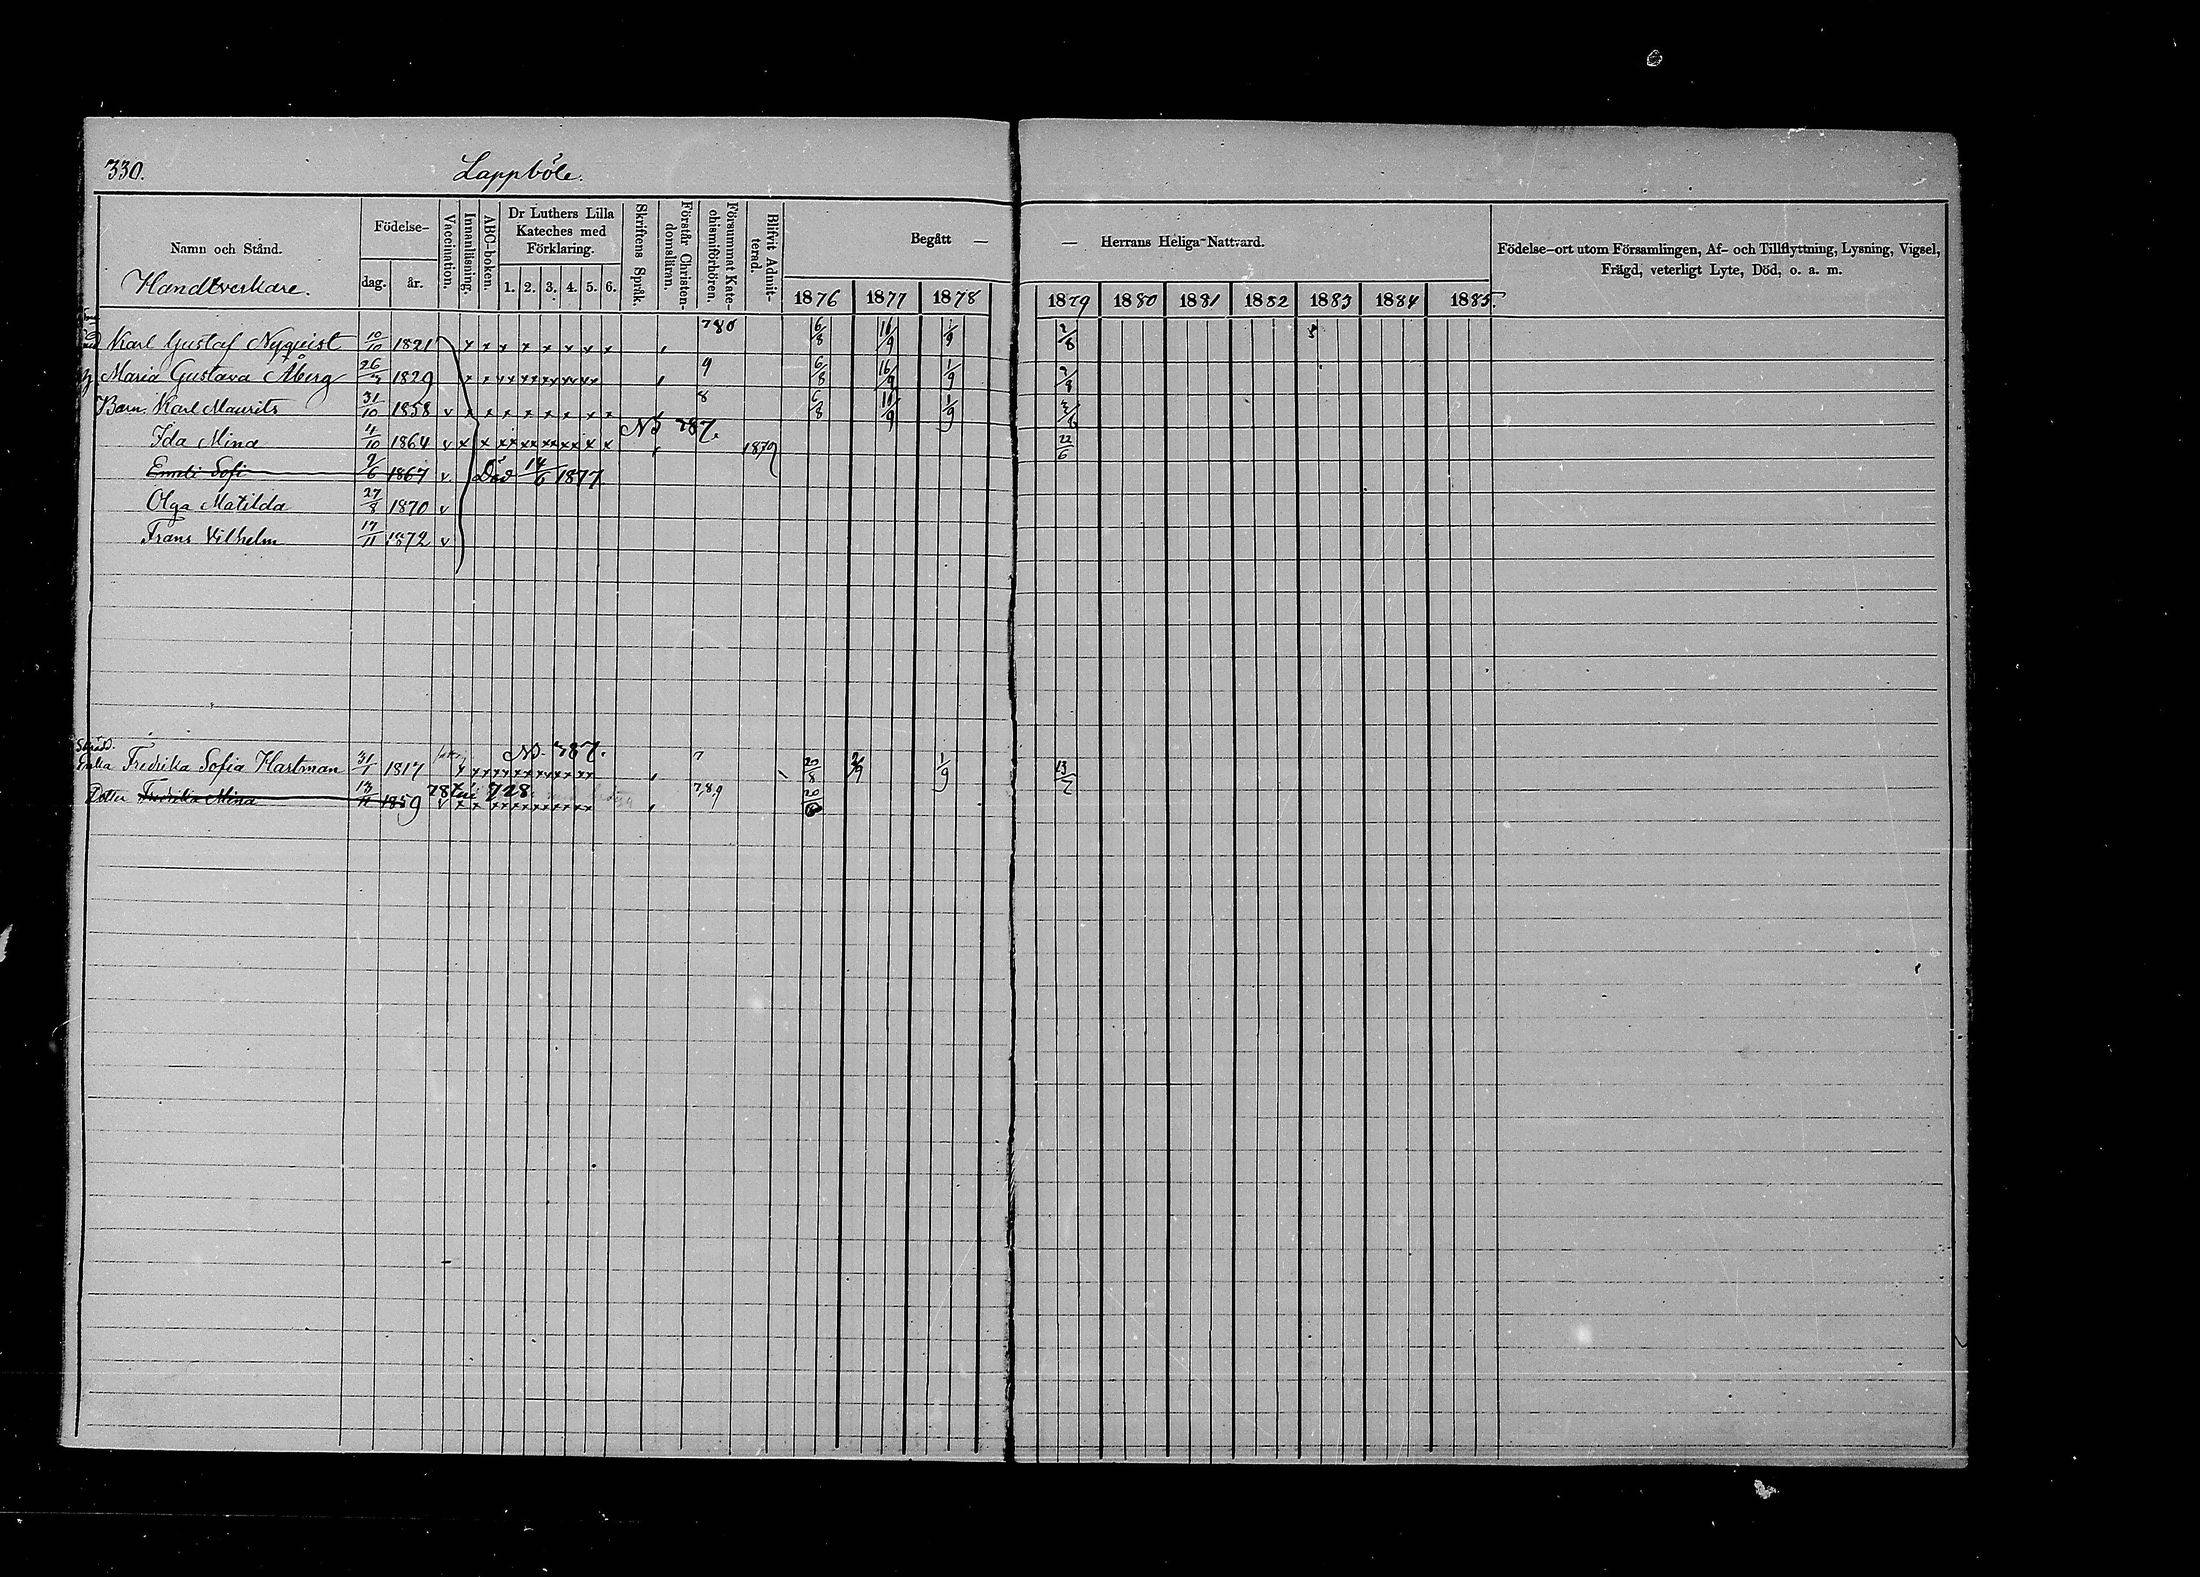 330.
Lappböle.
Namn och Stånd.
Handtverkare.
Födelse-
dag.
år.
Vaccination.
Innanläsning.
ABC-boken.
Dr Luthers Lilla
Kateches med
Förklaring.
1. 2. 3. 4. 5. 6.
Skriftens Språk.
Förstår Christen-
domsläran.
Försummat Kate-
chismiförhören.
Blifvit Admit-
terad.
Begått —
1876 1877 1878
— Herrans Heliga Nattvard.
1879 1880 1881 1882 1883 1884 1885.
Födelse-ort utom Församlingen, Af- och Tillflyttning, Lysning, Vigsel,
Frägd, veterligt Lyte, Död, o. a. m.
Karl Gustaf Nyqvist 10/10 1821 x x x x x x x x 780 6/8 16/9 1/9 2/8
Maria Gustava Åberg 26/3 1829 9 6/8 16/9 1/9 2/8
Barn. Karl Maurits 31/10 1858 v x x x x x x x x 8 6/8 1/9
N 387.
Ida Mina 4/10 1864 v x x 1879 22/6
Emili Sofi 9/6 1867 v Död 14/6 1877
Olga Matilda 27/8 1870 v
Frans Vilhelm 17/11 1872 v
Skrädd.
N 387.
Enka Fredrika Sofia Hartman 31/1 1817 7 20/8 2/9 1/9 13/7
Dotter Fredrika Mina 13/11 1859 v 78 728 7,8,9 20/8